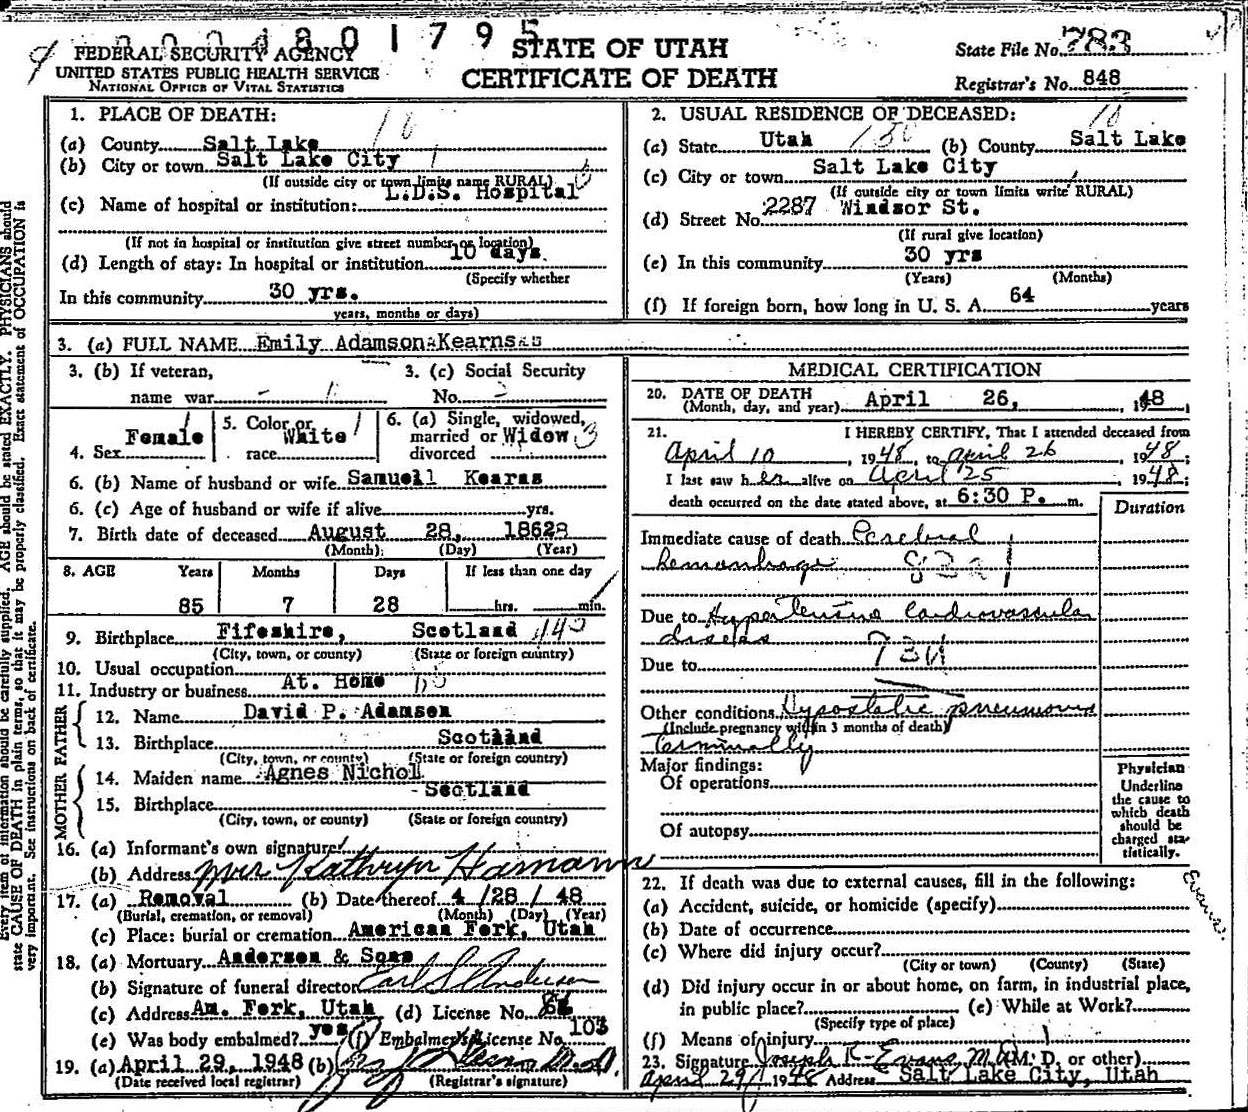 0004801795
FEDERAL SECURITY AGENCY
UNITED STATES PUBLIC HEALTH SERVICE
NATIONAL OFFICE OF VITAL STATISTICS
STATE OF UTAH
CERTIFICATE OF DEATH
State File No. 783
Registrar's No. 848
1. PLACE OF DEATH: 18
(a) County Salt Lake
(b) City or town Salt Lake City 1
(If outside city or town limits name RURAL)
(c) Name of hospital or institution: L.D.S. Hospital
(If not in hospital or institution give street number or location)
(d) Length of stay: In hospital or institution 10 days.
(Specify whether
In this community 30 yrs.
years, months or days)
2. USUAL RESIDENCE OF DECEASED: 18
(a) State Utah 150 (b) County Salt Lake
(c) City or town Salt Lake City
(If outside city or town limits write RURAL)
(d) Street No. 2287 Windsor St.
(If rural give location)
(e) In this community 30 yrs
(Years) (Months)
(f) If foreign born, how long in U. S. A. 64 years
3. (a) FULL NAME Emily Adamson Kearns
3. (b) If veteran,
name war -
3. (c) Social Security
No. -
4. Sex Female 1
5. Color or
race White 1
6. (a) Single, widowed,
married or
divorced Widow 3
6. (b) Name of husband or wife Samuell Kearns
6. (c) Age of husband or wife if alive yrs.
7. Birth date of deceased August 28, 1862
(Month) (Day) (Year)
8. AGE Years Months Days If less than one day
85 7 28 hrs. min.
9. Birthplace Fifeshire, Scotland 140
(City, town, or county) (State or foreign country)
10. Usual occupation
11. Industry or business At. Home
FATHER
12. Name David P. Adamson
13. Birthplace Scotland
(City, town, or county) (State or foreign country)
MOTHER
14. Maiden name Agnes Nichol
15. Birthplace Scotland
(City, town, or county) (State or foreign country)
16. (a) Informant's own signature
(b) Address Mrs Kathryn Hamann
17. (a) Removal (b) Date thereof 4 /28 / 48
(Burial, cremation, or removal) (Month) (Day) (Year)
(c) Place: burial or cremation American Fork, Utah
18. (a) Mortuary Anderson & Sons
(b) Signature of funeral director Carl S Anderson
(c) Address Am. Fork, Utah (d) License No.
(e) Was body embalmed? yes (f) Embalmer's License No. 103
19. (a) April 29, 1948 (b)
(Date received local registrar) (Registrar's signature)
MEDICAL CERTIFICATION
20. DATE OF DEATH
(Month, day, and year) April 26, 1948
21. I HEREBY CERTIFY, That I attended deceased from
April 10, 1948, to April 26 1948;
I last saw her alive on April 25, 1948;
death occurred on the date stated above, at 6:30 P. m.
Duration
Immediate cause of death Cerebral
hemorrhage 83a1
Due to Hypertensive Cardiovascular
disease
Due to
Other conditions Hypostatic pneumonia
(Include pregnancy within 3 months of death)
Terminally
Major findings:
Of operations
Of autopsy
Physician
Underline
the cause to
which death
should be
charged sta-
tistically.
22. If death was due to external causes, fill in the following:
(a) Accident, suicide, or homicide (specify)
(b) Date of occurrence
(c) Where did injury occur?
(City or town) (County) (State)
(d) Did injury occur in or about home, on farm, in industrial place,
in public place? (e) While at Work?
(Specify type of place)
(f) Means of injury
23. Signature Joseph R Evans M.D. (M. D. or other)
April 29, 1948 Address Salt Lake City, Utah
Evans.
Every item of information should be carefully supplied. AGE should be stated EXACTLY. PHYSICIANS should
state CAUSE OF DEATH in plain terms, so that it may be properly classified. Exact statement of OCCUPATION is
very important. See instructions on back of certificate.